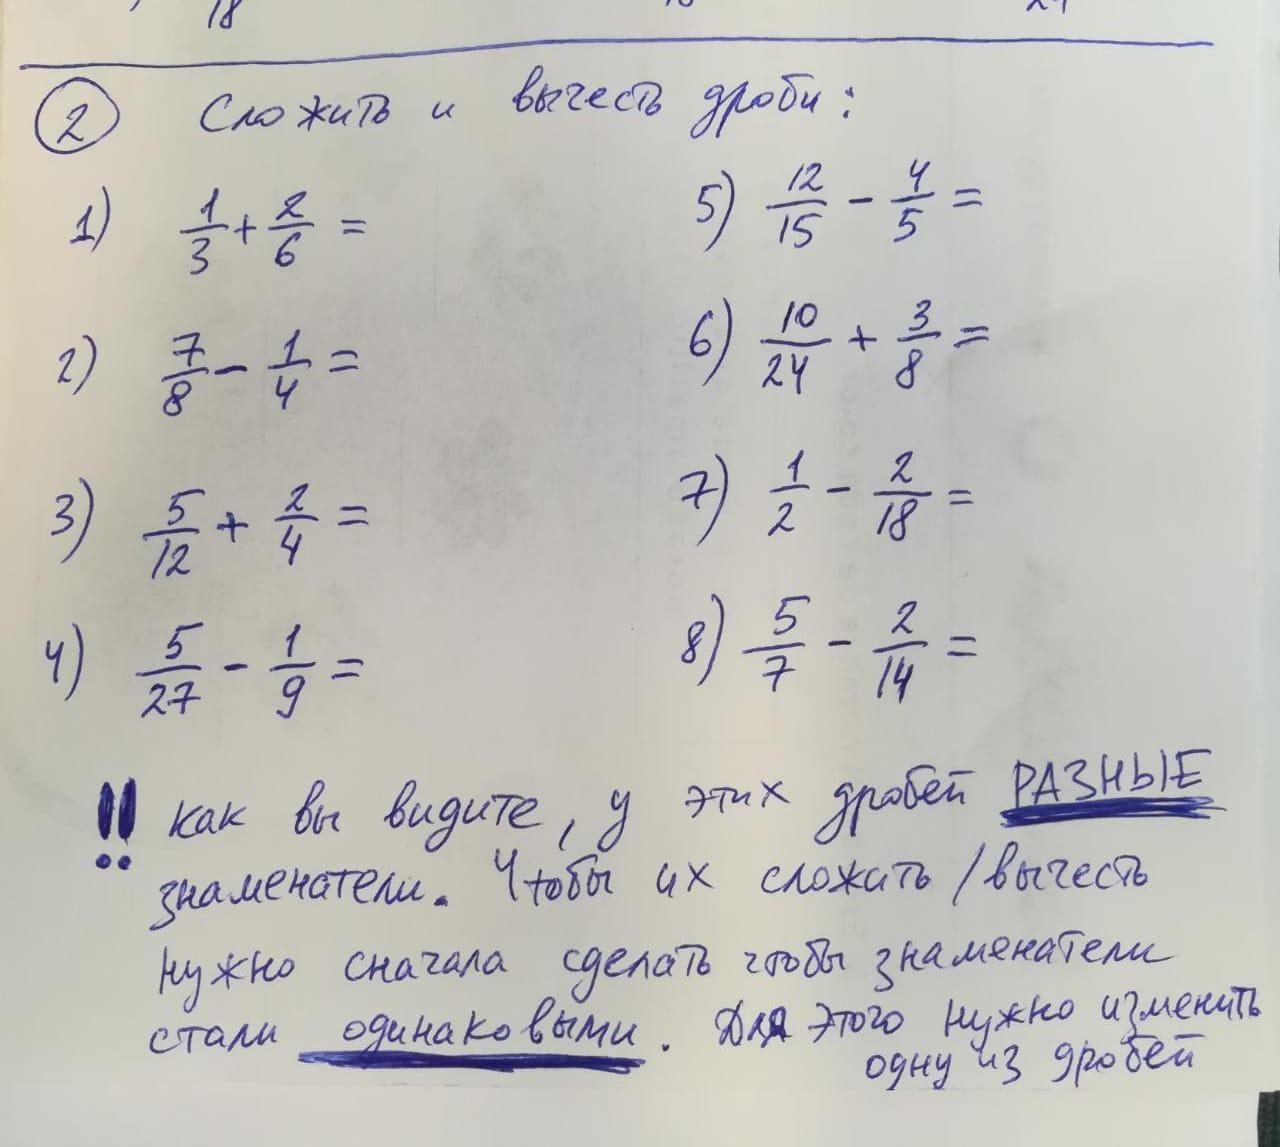 18
② Сложить и вычесть дроби:
1) 1/3 + 2/6 =
5) 12/15 - 4/5 =
2) 7/8 - 1/4 =
6) 10/24 + 3/8 =
3) 5/12 + 2/4 =
7) 1/2 - 2/18 =
4) 5/27 - 1/9 =
8) 5/7 - 2/14 =
!! как вы видите, у этих дробей РАЗНЫЕ
знаменатели. Чтобы их сложить / вычесть
нужно сначала сделать чтобы знаменатели
стали одинаковыми. Для этого нужно изменить
одну из дробей